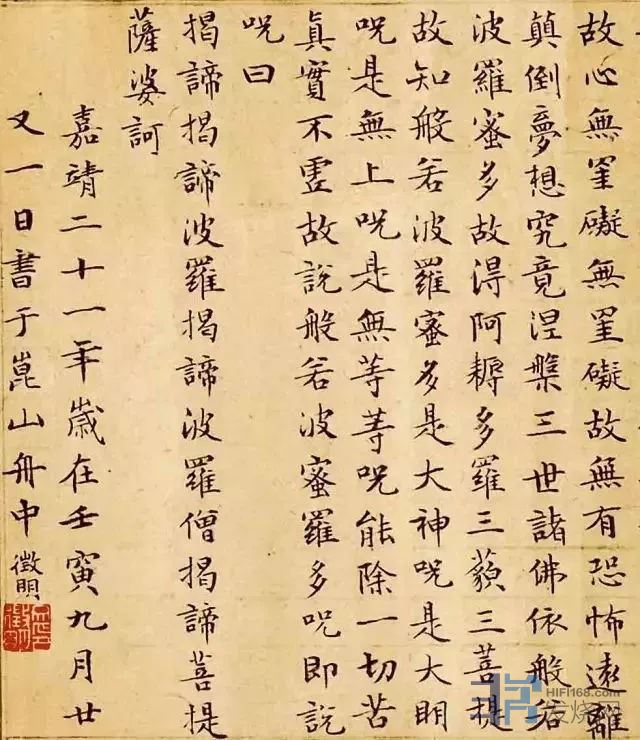 故心無罣礙無罣礙故無有恐怖遠離
顛倒夢想究竟涅槃三世諸佛依般若
波羅蜜多故得阿耨多羅三藐三菩提
故知般若波羅蜜多是大神呪是大明
呪是無上呪是無等等呪能除一切苦
眞實不虛故說般若波蜜羅多呪即說
呪曰
揭諦揭諦波羅揭諦波羅僧揭諦菩提
薩婆訶
嘉靖二十一年歲在壬寅九月廿
又一日書于崑山舟中徵明
HIFI168.com
发烧